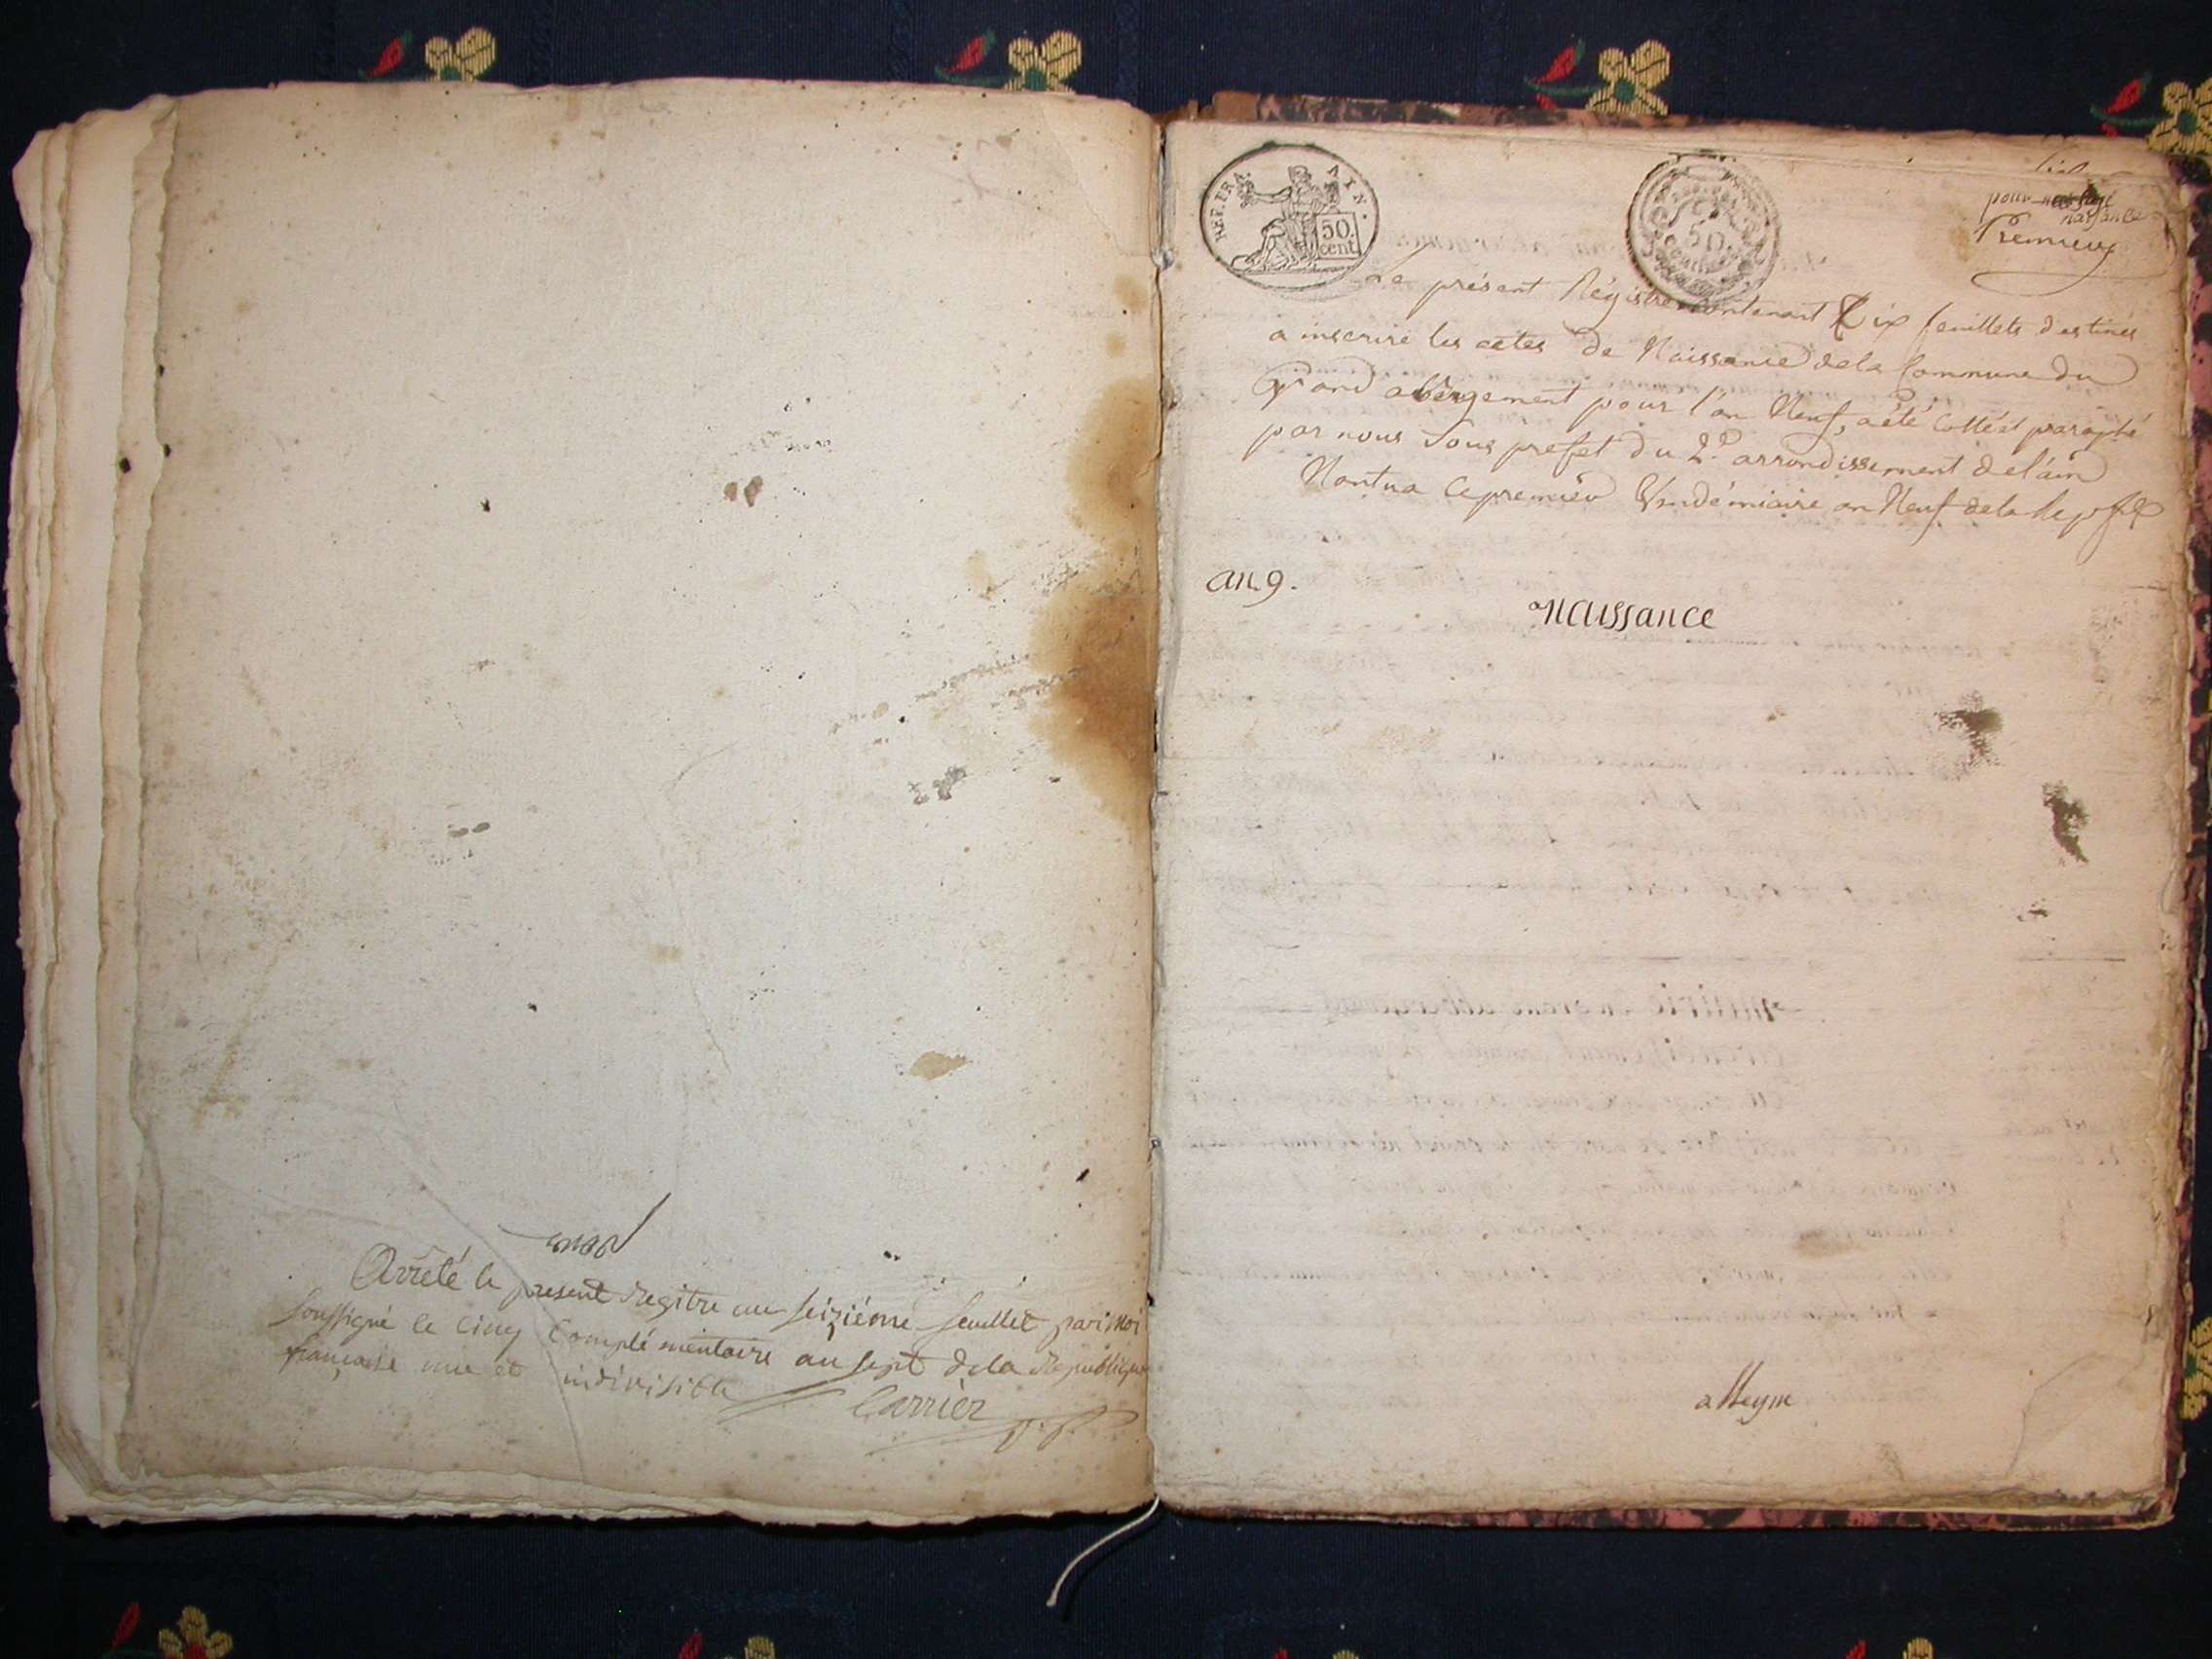 Arrêté le present Regitre au seiziéme feuillet par moi
soussigné le cinq complémentaire an sept dela Republique
française une et indivisible
Carrier
REP. FRA. AIN.
50.
cent.
50
pour mariage
naissance
Premier
Le présent Régistre contenant Dix feuillets destinés
a inscrire les actes de Naissance dela Commune du
Grand abergement pour l'an Neuf, a été Cotté et paraphé
par nous Sous prefet du 2e. arrondissement de l'ain
Nantua ce premier Vendémiaire an Neuf dela Rep. f.
an 9.
Naissance